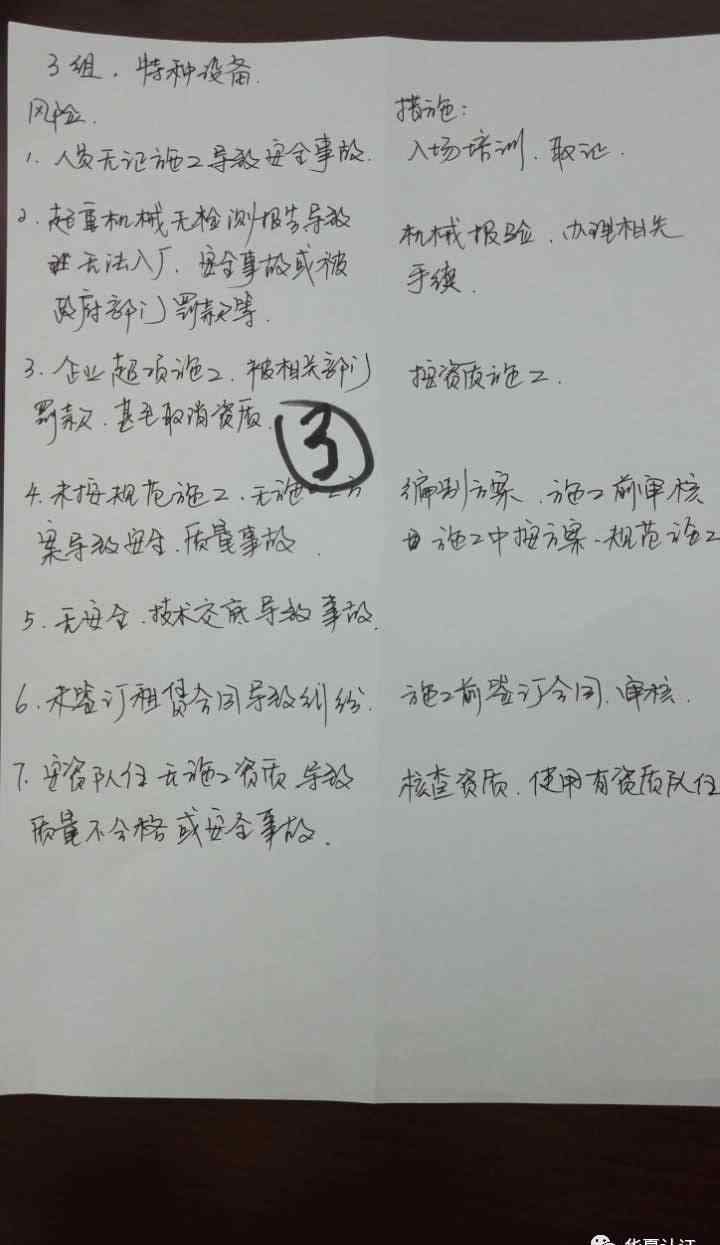 3组、特种设备.
风险.
措施：
1、人员无证施工导致安全事故.
入场培训、取证.
2、起重机械无检测报告导致
无法入厂、安全事故或被
政府部门罚款等.
机械报验、办理相关
手续.
3、企业超项施工、被相关部门
罚款、甚至取消资质.
按资质施工.
③
4、未按规范施工、无施工方
案导致安全、质量事故.
编制方案、施工前审核
施工中按方案、规范施工
5、无安全、技术交底导致事故.
6、未签订租赁合同导致纠纷.
施工前签订合同、审核.
7、安装队伍无施工资质导致
质量不合格或安全事故.
核查资质、使用有资质队伍
华夏认证